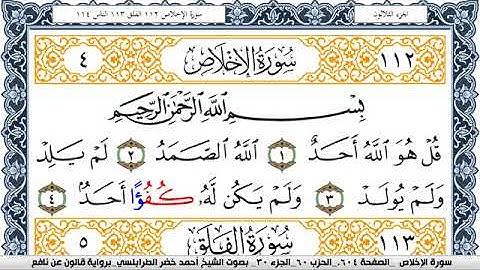 سورة الإخلاص ١١٢ الفلق ١١٣ الناس ١١٤ الجزء الثلاثون
١١٢ سُورَةُ الإِخْلَاصِ ٤
بِسْمِ اللَّهِ الرَّحْمَٰنِ الرَّحِيمِ
قُلْ هُوَ اللَّهُ أَحَدٌ ١ اللَّهُ الصَّمَدُ ٢ لَمْ يَلِدْ
وَلَمْ يُولَدْ ٣ وَلَمْ يَكُن لَّهُ كُفُؤًا أَحَدٌ ٤
١١٣ سُورَةُ الْفَلَقِ ٥
سورة الإخلاص _ الصفحة ٦٠٤_ الحزب ٦٠_ الجزء ٣٠_ بصوت الشيخ أحمد خضر الطرابلسي_ برواية قالون عن نافع